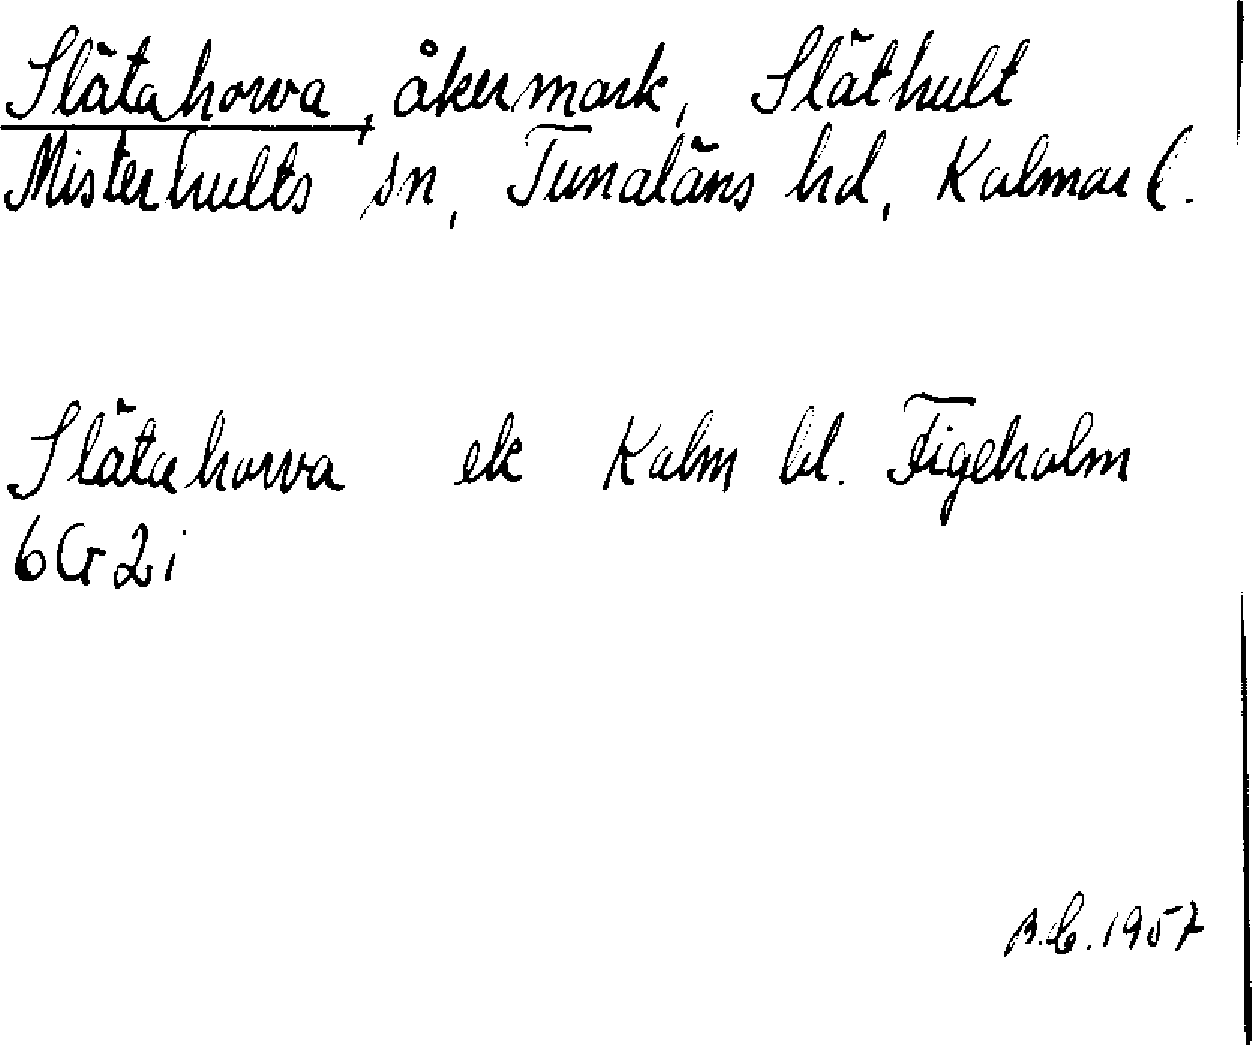 Slätahorva, åkermark, Släthult
Misterhults sn, Tunaläns hd, Kalmar l.
Slätahorva ek Kalm bl. Figeholm
6G2i
B.E. 1957